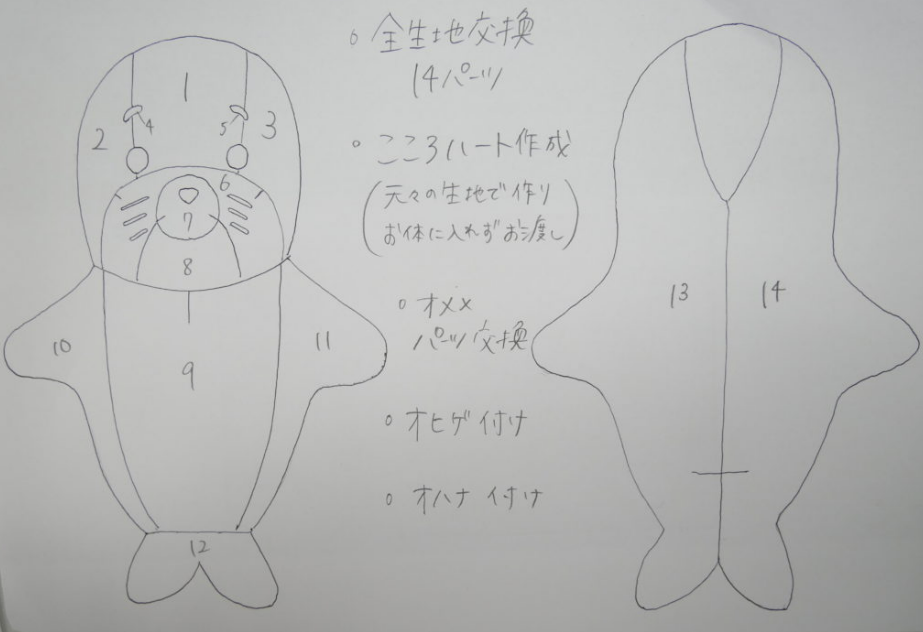 ○ 全生地交換
14パーツ
○ こころハート作成
(元々の生地で作り
お体に入れずお渡し)
○ オメメ
パーツ交換
○ オヒゲ付け
○ オハナ付け
1
2
3
4
5
6
7
8
9
10
11
12
13
14